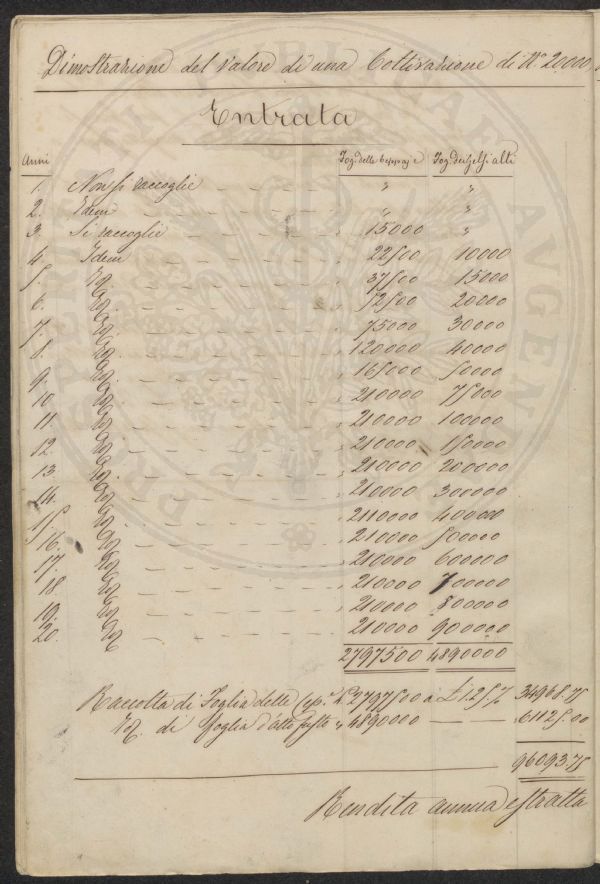 Dimostrazione del valore di una Coltivazione di N.º 20,000,
Entrata
Anni Fog.ª delle Fog.ª de Gelsi alti
1. Non si raccoglie — — — — " "
2. Idem — — — — " "
3. Si raccoglie — — — — „ 15000 "
4. Idem — — — — „ 22500 10000
5. Eq. — — — — „ 37500 15000
6. Eq. — — — — „ 52500 20000
7. Eq. — — — — „ 75000 30000
8. Eq. — — — — „ 120000 40000
9. Eq. — — — — „ 165000 50000
10. Eq. — — — — „ 210000 75000
11. Eq. — — — — „ 210000 100000
12. Eq. — — — — „ 210000 150000
13. Eq. — — — — „ 210000 200000
14. Eq. — — — — „ 210000 300000
15. Eq. — — — — „ 2110000 400000
16. Eq. — — — — „ 210000 500000
17. Eq. — — — — „ 210000 600000
18. Eq. — — — — „ 210000 700000
19. Eq. — — — — „ 210000 800000
20. Eq. — — — — „ 210000 900000
2797500 4890000
Raccolta di Foglia delle 2797500 a £ 1.25 % 34968.75
Eq. di Foglia d'alto fusto „ 4890000 — — 61125.00
96093.75
Rendita annua estratta
PROSPERITATI PUBLICAE AUGENDAE